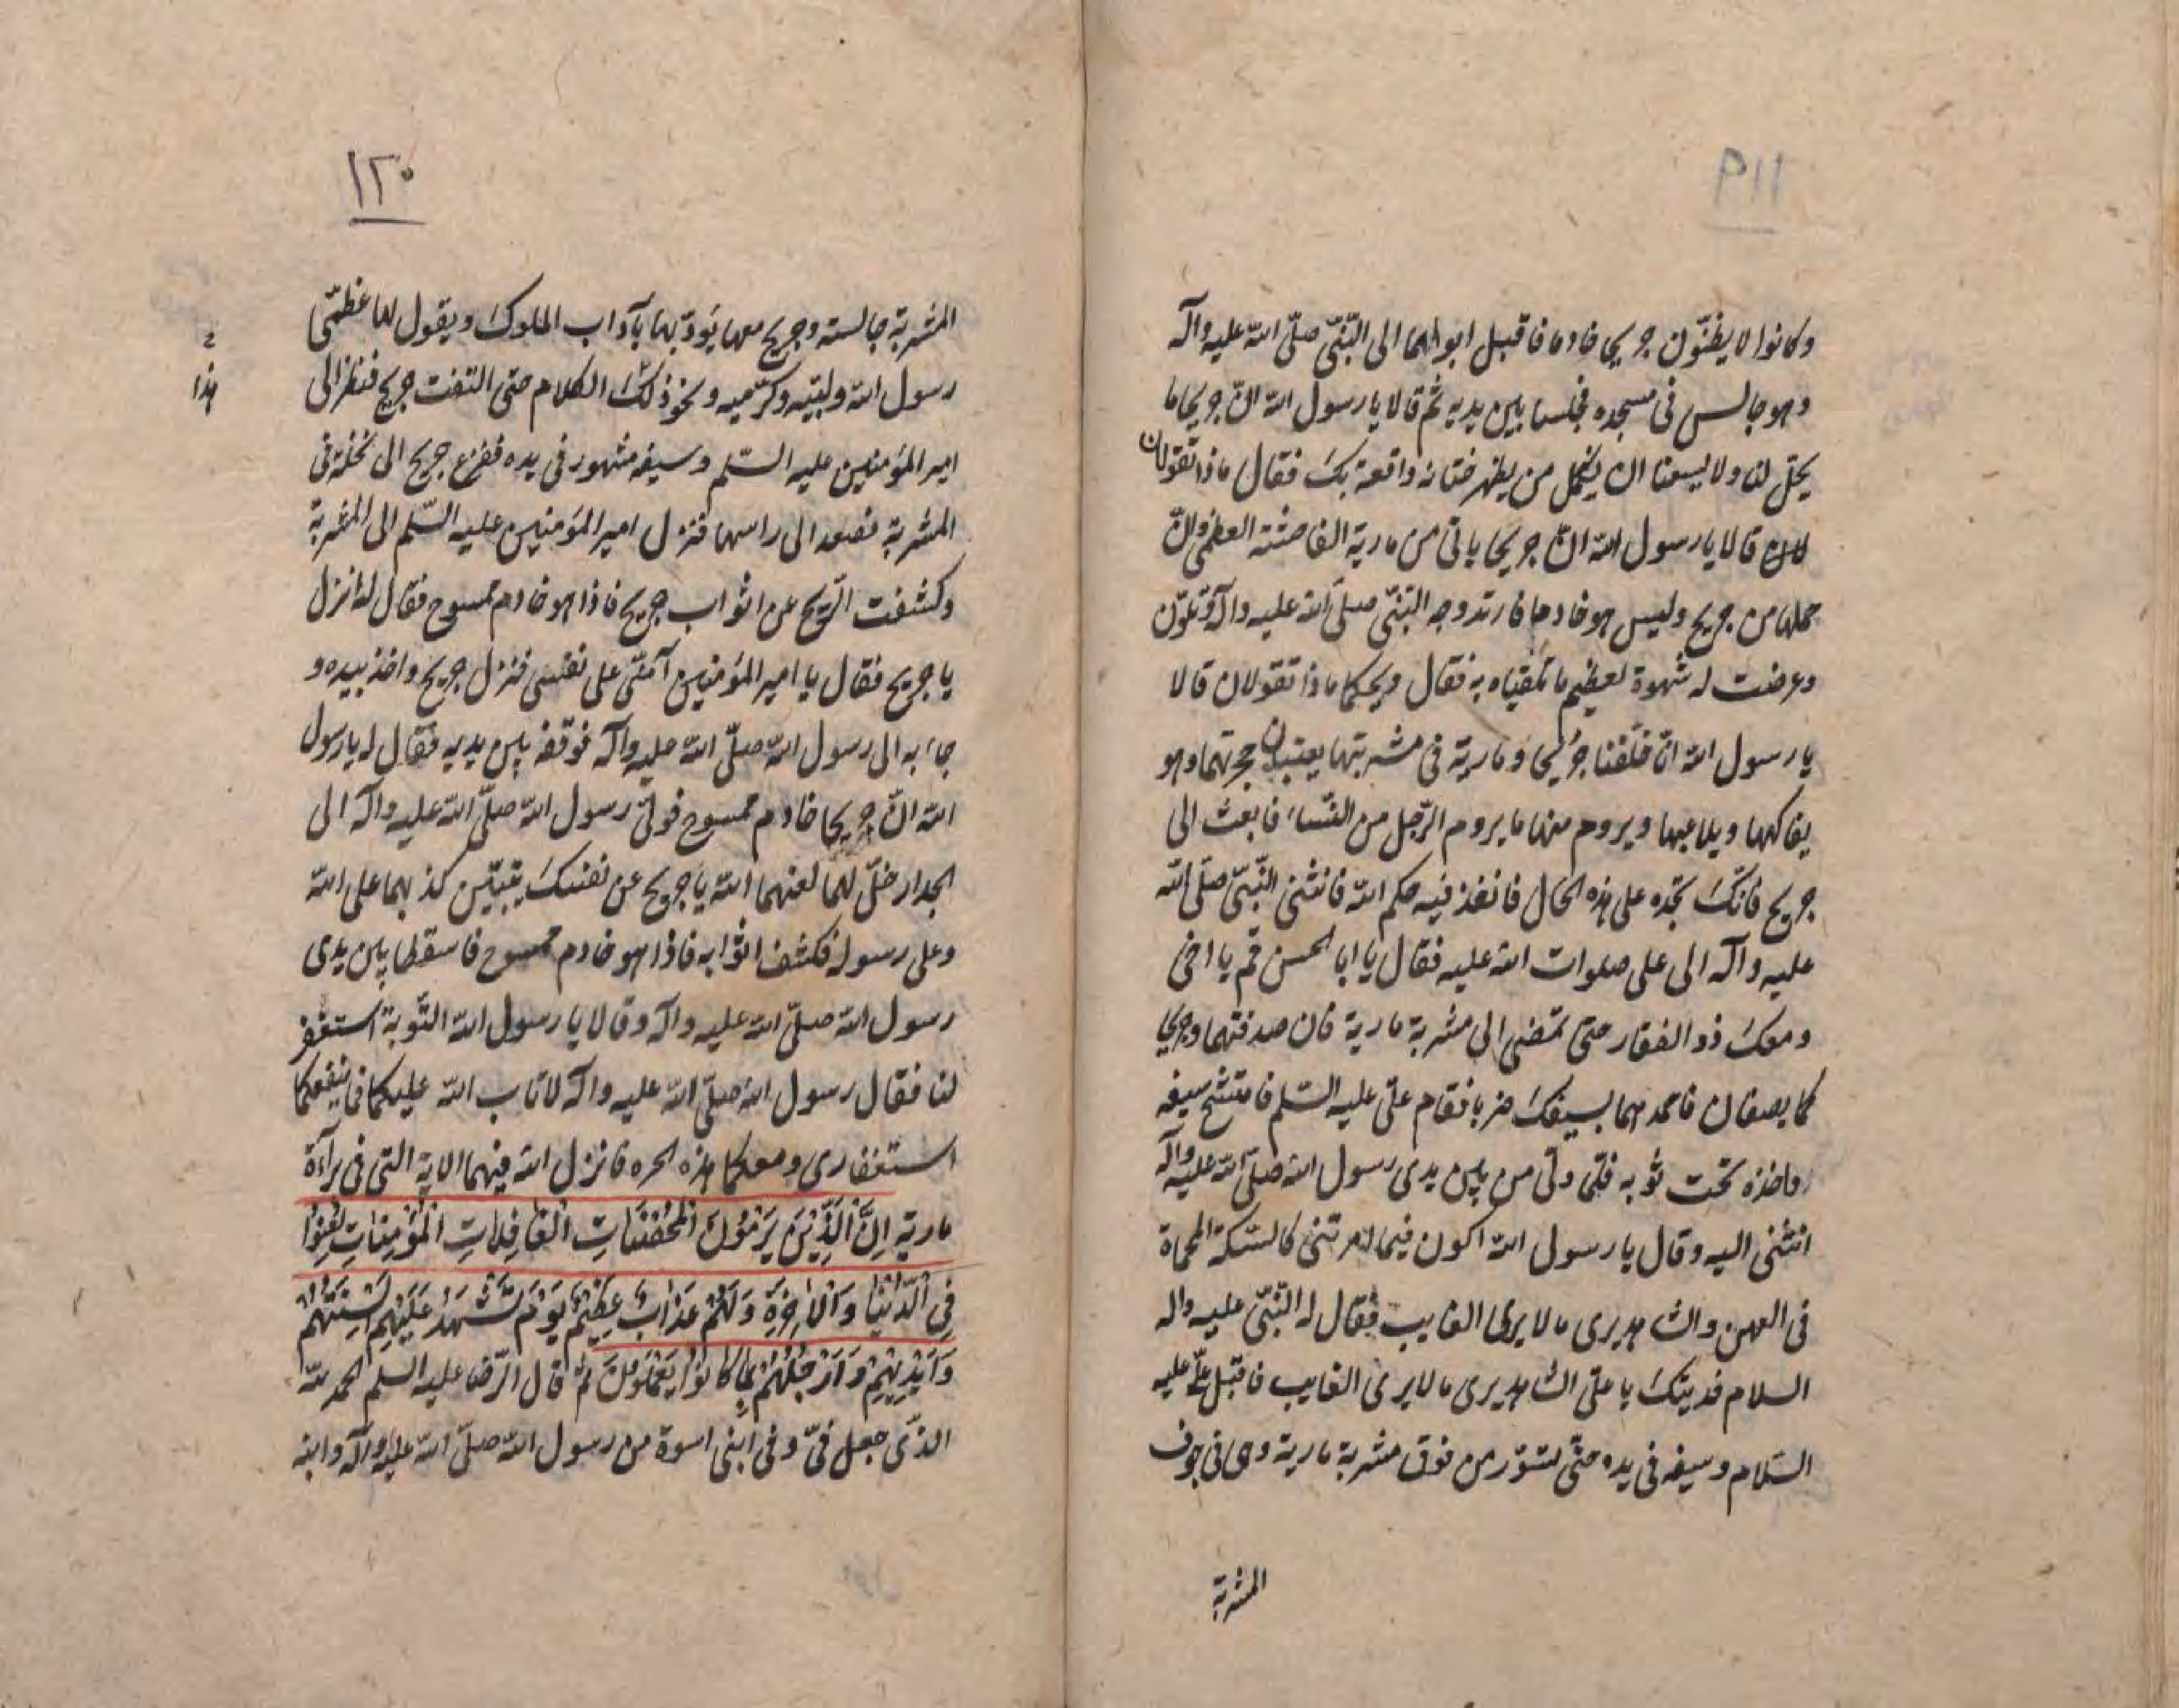 ١١٩
وكانوا لا يظنّون جريحا خادما فاقبل ابواهما الى النّبىّ صلّى الله عليه وآله
وهو جالس فى مسجده فجلسا بين يديه ثم قالا يا رسول الله انّ جريحا ما
يحلّ لنا ولا يسعنا ان يظهر خيانة واقعة بك فقال ماذا تقولان
قالا يا رسول الله انّ جريحا ياتى من مارية الفاحشة العظمى وانّ
حملها من جريح وليس هو خادما فاربد وجه النّبىّ صلّى الله عليه وآله وتلوّن
وعرضت له شهوة لعظيم ما تلقياه به فقال ويحكما ماذا تقولان قالا
يا رسول الله انّا خلّفنا جريحا ومارية فى مشربتها وهو
يفاكهها ويلاعبها ويروم منها ما يروم الرّجل من النّساء فابعث الى
جريح فانّك تجده على هذه الحال فانفذ فيه حكم الله فانثنى النّبىّ صلّى الله
عليه وآله الى على صلوات الله عليه فقال يا ابا الحسن قم يا اخى
ومعك ذو الفقار حتى تمضى الى مشربة مارية فان صدفتها وجريحا
كما يصفان فاخمدهما بسيفك ضربا فقام علىّ عليه السّلم فاتشح سيفه
واخذه تحت ثوبه فلمّا ولّى من بين يدى رسول الله صلّى الله عليه وآله
انثنى اليه وقال يا رسول الله اكون فيما امرتنى كالسّكة المحماة
فى العهن والشاهد يرى ما لا يرى الغايب فقال له النّبىّ عليه واله
السلام فديتك يا علىّ الشاهد يرى ما لا يرى الغايب فاقبل علىّ عليه
السّلام وسيفه فى يده حتّى تسوّر من فوق مشربة مارية وهى فى جوف
المشربة
١٢٠
المشربة جالسة وجريح معها يؤدّبها بآداب الملوك ويقول لها عظّمى
رسول الله ولبّيه وكرّميه ونحو ذلك الكلام حتى التفت جريح فنظر الى
هذا
امير المؤمنين عليه السّلم وسيفه مشهور فى يده ففزع جريح الى نخلة فى
المشربة فصعد الى راسها فنزل امير المؤمنين عليه السّلم الى المشربة
وكشفت الرّيح عن اثواب جريح فاذا هو خادم ممسوح فقال له انزل
يا جريح فقال يا امير المؤمنين آمنّى على نفسى فنزل جريح واخذ بيده و
جاء به الى رسول الله صلّى الله عليه وآله فوقفه بين يديه فقال له يا رسول
الله انّ جريحا خادم ممسوح فولّى رسول الله صلّى الله عليه وآله الى
الجدار حلّ لهما لعنهما الله يا جريح عن نفسك يتبيّن كذبهما على الله
وعلى رسوله فكشف اثوابه فاذا هو خادم ممسوح فاسقطا بين يدى
رسول الله صلّى الله عليه وآله وقالا يا رسول الله التّوبة استغفر
لنا فقال رسول الله صلّى الله عليه وآله لا تاب الله عليكما فما ينفعكما
استغفارى ومعكما هذه الجره فانزل الله فيهما الاية التى فى برآءة
مارية اِنَّ الَّذِيْنَ يَرْمُوْنَ الْمُحْصَنَاتِ الْغَافِلاتِ الْمُؤْمِنَاتِ لُعِنُوْا
فِى الدُّنْيَا وَالْاٰخِرَةِ وَلَهُمْ عَذَابٌ عَظِيْمٌ يَوْمَ تَشْهَدُ عَلَيْهِمْ اَلْسِنَتُهُمْ
وَاَيْدِيْهِمْ وَاَرْجُلُهُمْ بِمَا كَانُوْا يَعْمَلُوْنَ ثم قال الرّضا عليه السلم الحمد لله
الذّى جعل فىّ وفى ابنى اسوة من رسول الله صلّى الله عليه وآله وابنه